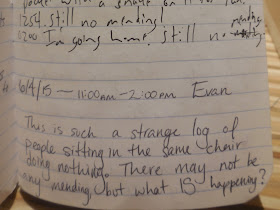 1254. Still no mending!
0200 I'm going home! Still no mending
6/4/15 — 11:00am - 2:00pm Evan
This is such a strange log of
people sitting in the same chair
doing nothing. There may not be
any mending, but what IS happening?